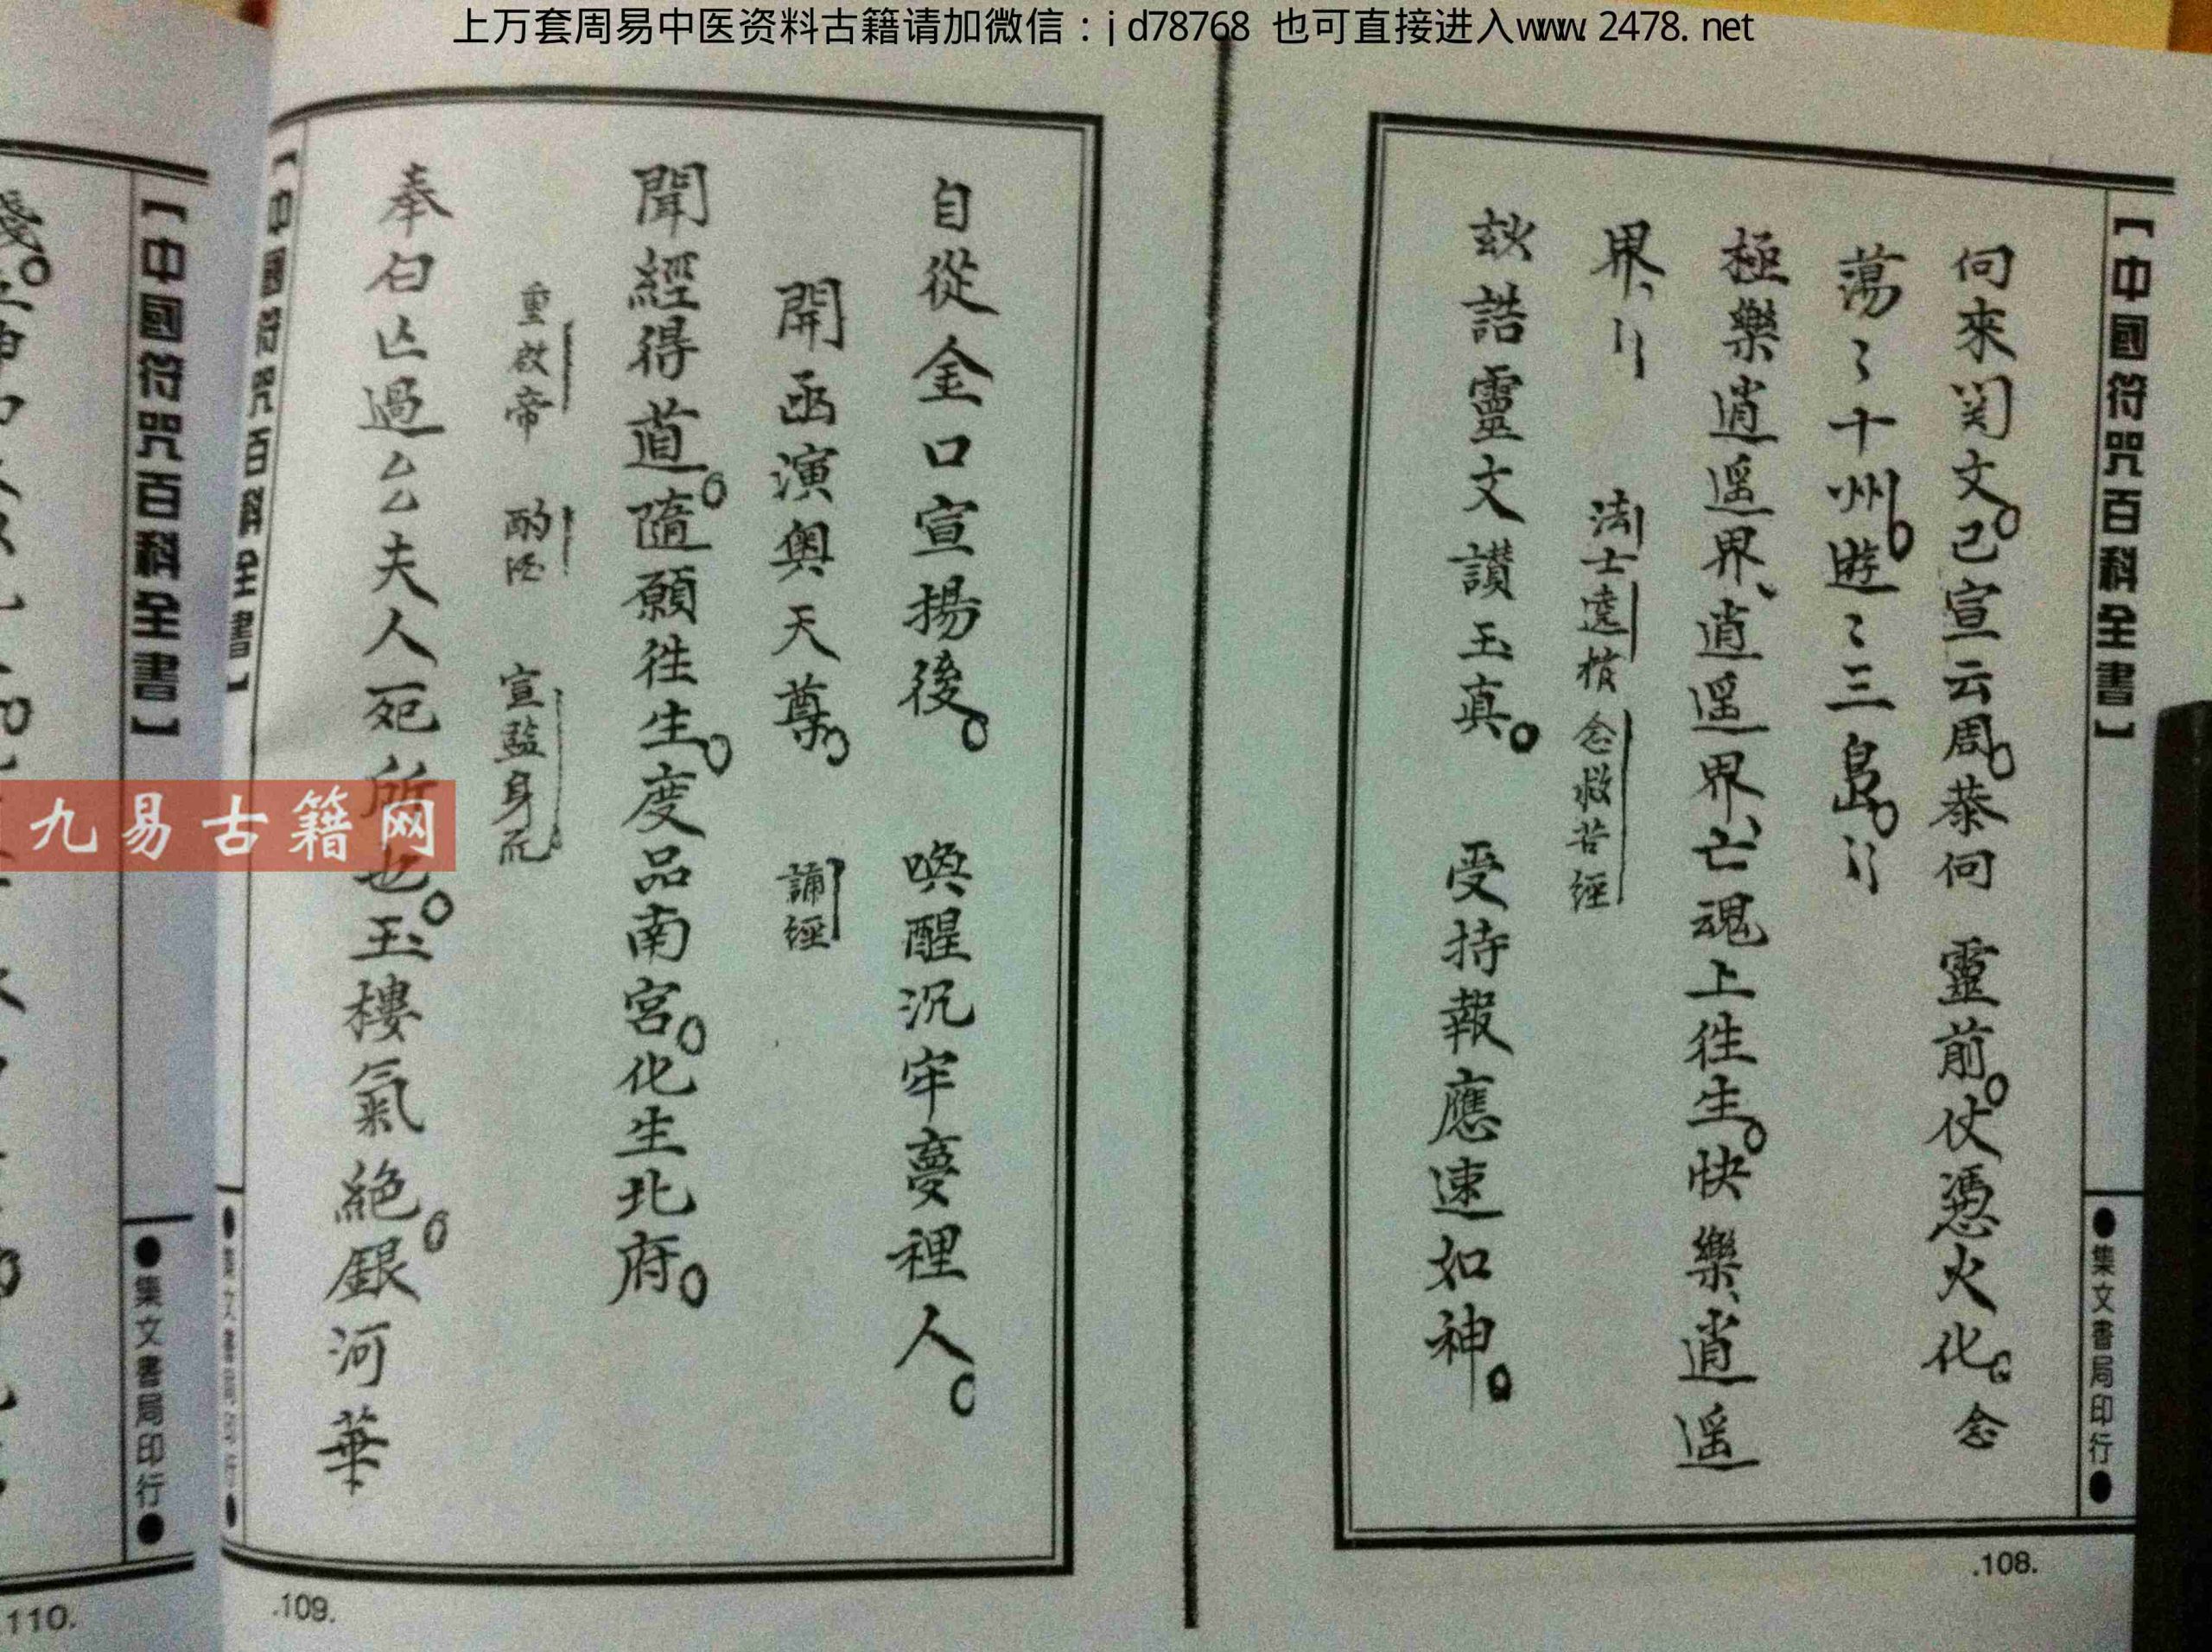 上万套周易中医资料古籍请加微信：jd78768 也可直接进入www.2478.net
【中國符咒百科全書】
●集文書局印行●
向來関文已宣云周恭向 靈前仗憑火化 念
蕩〻十州遊〻三島
極樂逍遥界逍遥界亡魂上徃生快樂逍遥
界
法士遶棺 念救苦經
誥靈文讃玉真 受持報應速如神
.108.
自從金口宣揚後 喚醒沉牢夢裡人
開函演奥天尊 誦經
聞經得道隨願徃生度品南宮化生北府
重啟帝 酌酒 宣监身
奉白亾過厶厶夫人死所也玉樓氣絶銀河華
【中國符咒百科全書】
●集文書局印行●
.109.
【中國符咒百科全書】
●集文書局印行●
110.
九易古籍网